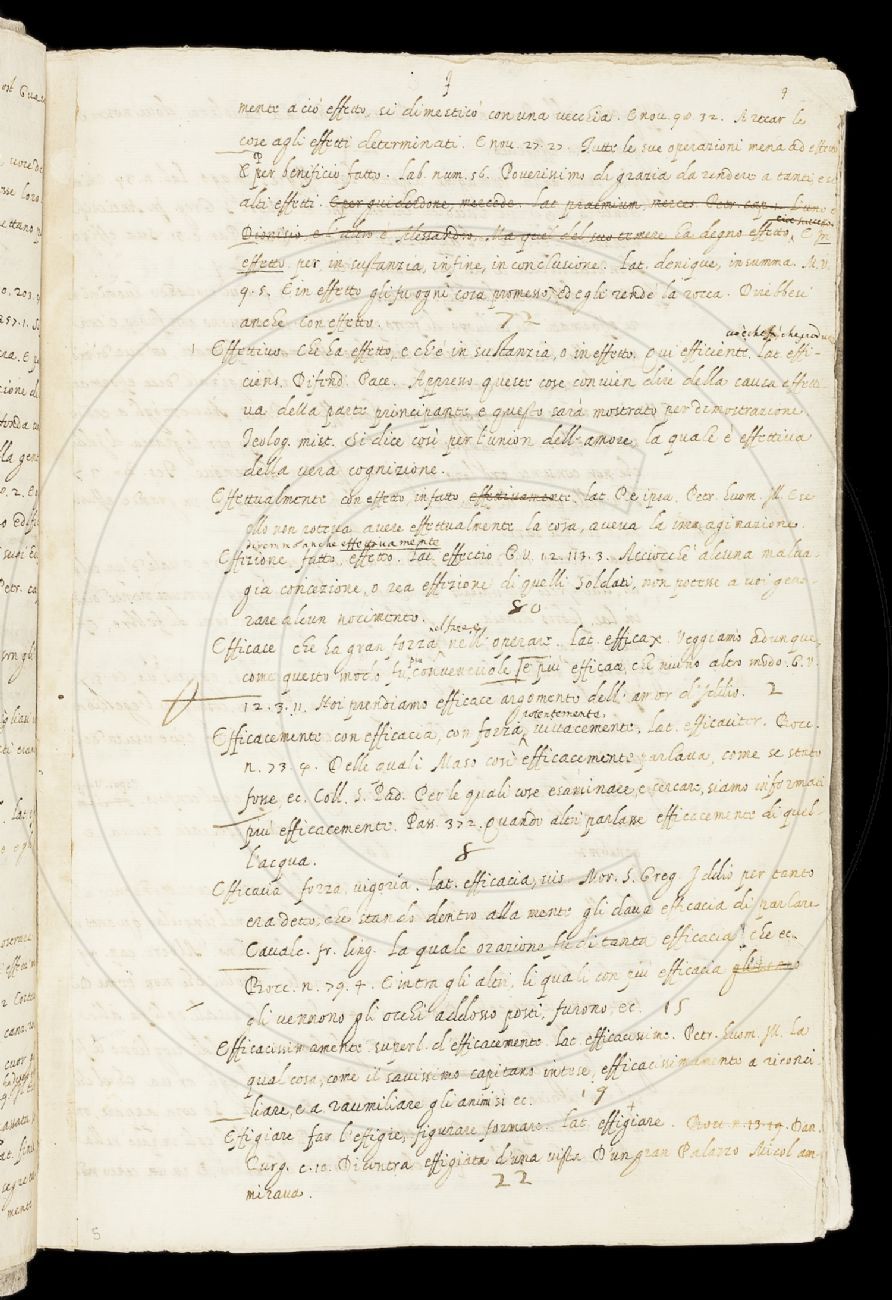 9
mente a ciò effetto, si dimesticò con una vecchia. E nov. 90. 32. Arrecar le
cose agli effetti determinati. E nov. 27. 27. Tutte le sue operazioni mena ad effetto
E per beneficio fatto. Lab. num. 56. Poverissimo di grazia da rendere a tanti, e
alti effetti. E per guiderdone, mercede. Lat. praemium, merces Petr. cap. L'uno è
Dionisio e l'altro è Alessandro, Ma quel del suo temere ha degno effetto, E In
effetto. per in sustanzia, in fine, in conclusione. Lat. denique, in summa. M. V.
9. 5. E in effetto gli fu ogni cosa promesso, ed egli rendè la rocca. Direbbesi
anche con effetto. 72
Effettivo. che ha effetto, e ch'è in sustanzia, o in effetto. qui efficiente. lat. effi-
ciens. Difend. Pace. Appresso queste cose convien dire della causa effetti
va della parte principante, e questo sarà mostrato per dimostrazione
Teolog. mist. Si dice così per l'union dell'amore, la quale è effettiva
della vera cognizione.
Effettualmente con effetto, in fatto effettivamente. lat. Re ipsa. Petr. huom. Ill. E se
ello non poteva avere effettualmente la cosa, aveva la immaginazione.
diremmo anche effettivamente
Effizione fatto, effetto. lat. effectio G. V. 12. 113. 3. Acciocchè alcuna malva-
gia concezione, o rea effizione di quelli soldati, non potesse a voi gene-
rare alcun nocimento. 80
Efficace che ha gran forza nell'operare. lat. efficax. Veggiamo adunque,
come questo modo fu più convenevole e più efficace, che nullo altro modo. G. V.
12. 3. 11. Noi prendiamo efficace argomento dell'amor d'Iddio. 2
potentemente
Efficacemente con efficacia, con forza, vivacemente. lat. efficaciter. Bocc.
n. 73. 4. Delle quali Maso così efficacemente parlava, come se stato
fosse, ec. Coll. S. Pad. Per le quali cose esaminare, e cercare, siamo informati
più efficacemente. Pass. 372. Quando altri parlasse efficacemente di quel-
l'acqua. 8
Efficacia forza, vigoria. lat. efficacia, vis Mor. S. Greg. Iddio per tanto
era detto, che stando dentro alla mente gli dava efficacia di parlare
Cavalc. fr. ling. La quale orazione fu di tanta efficacia che ec.
Bocc. n. 79. 4. E intra gli altri, li quali con più efficacia
gli vennono gli occhi addosso posti, furono, ec. 15
Efficacissimamente superl. d'efficacemente. lat. efficacissime. Petr. huom. Ill. La
qual cosa, come il savissimo capitano intese, efficacissimamente a riconci-
liare, e a raumiliare gli animi si ec. 19
Effigiare far l'effigie, figurare, formare. lat. effigiare. Dan.
Purg. c. 10. Di contra effigiata d'una vista D'un gran Palazzo Micol am-
mirava. 22
5